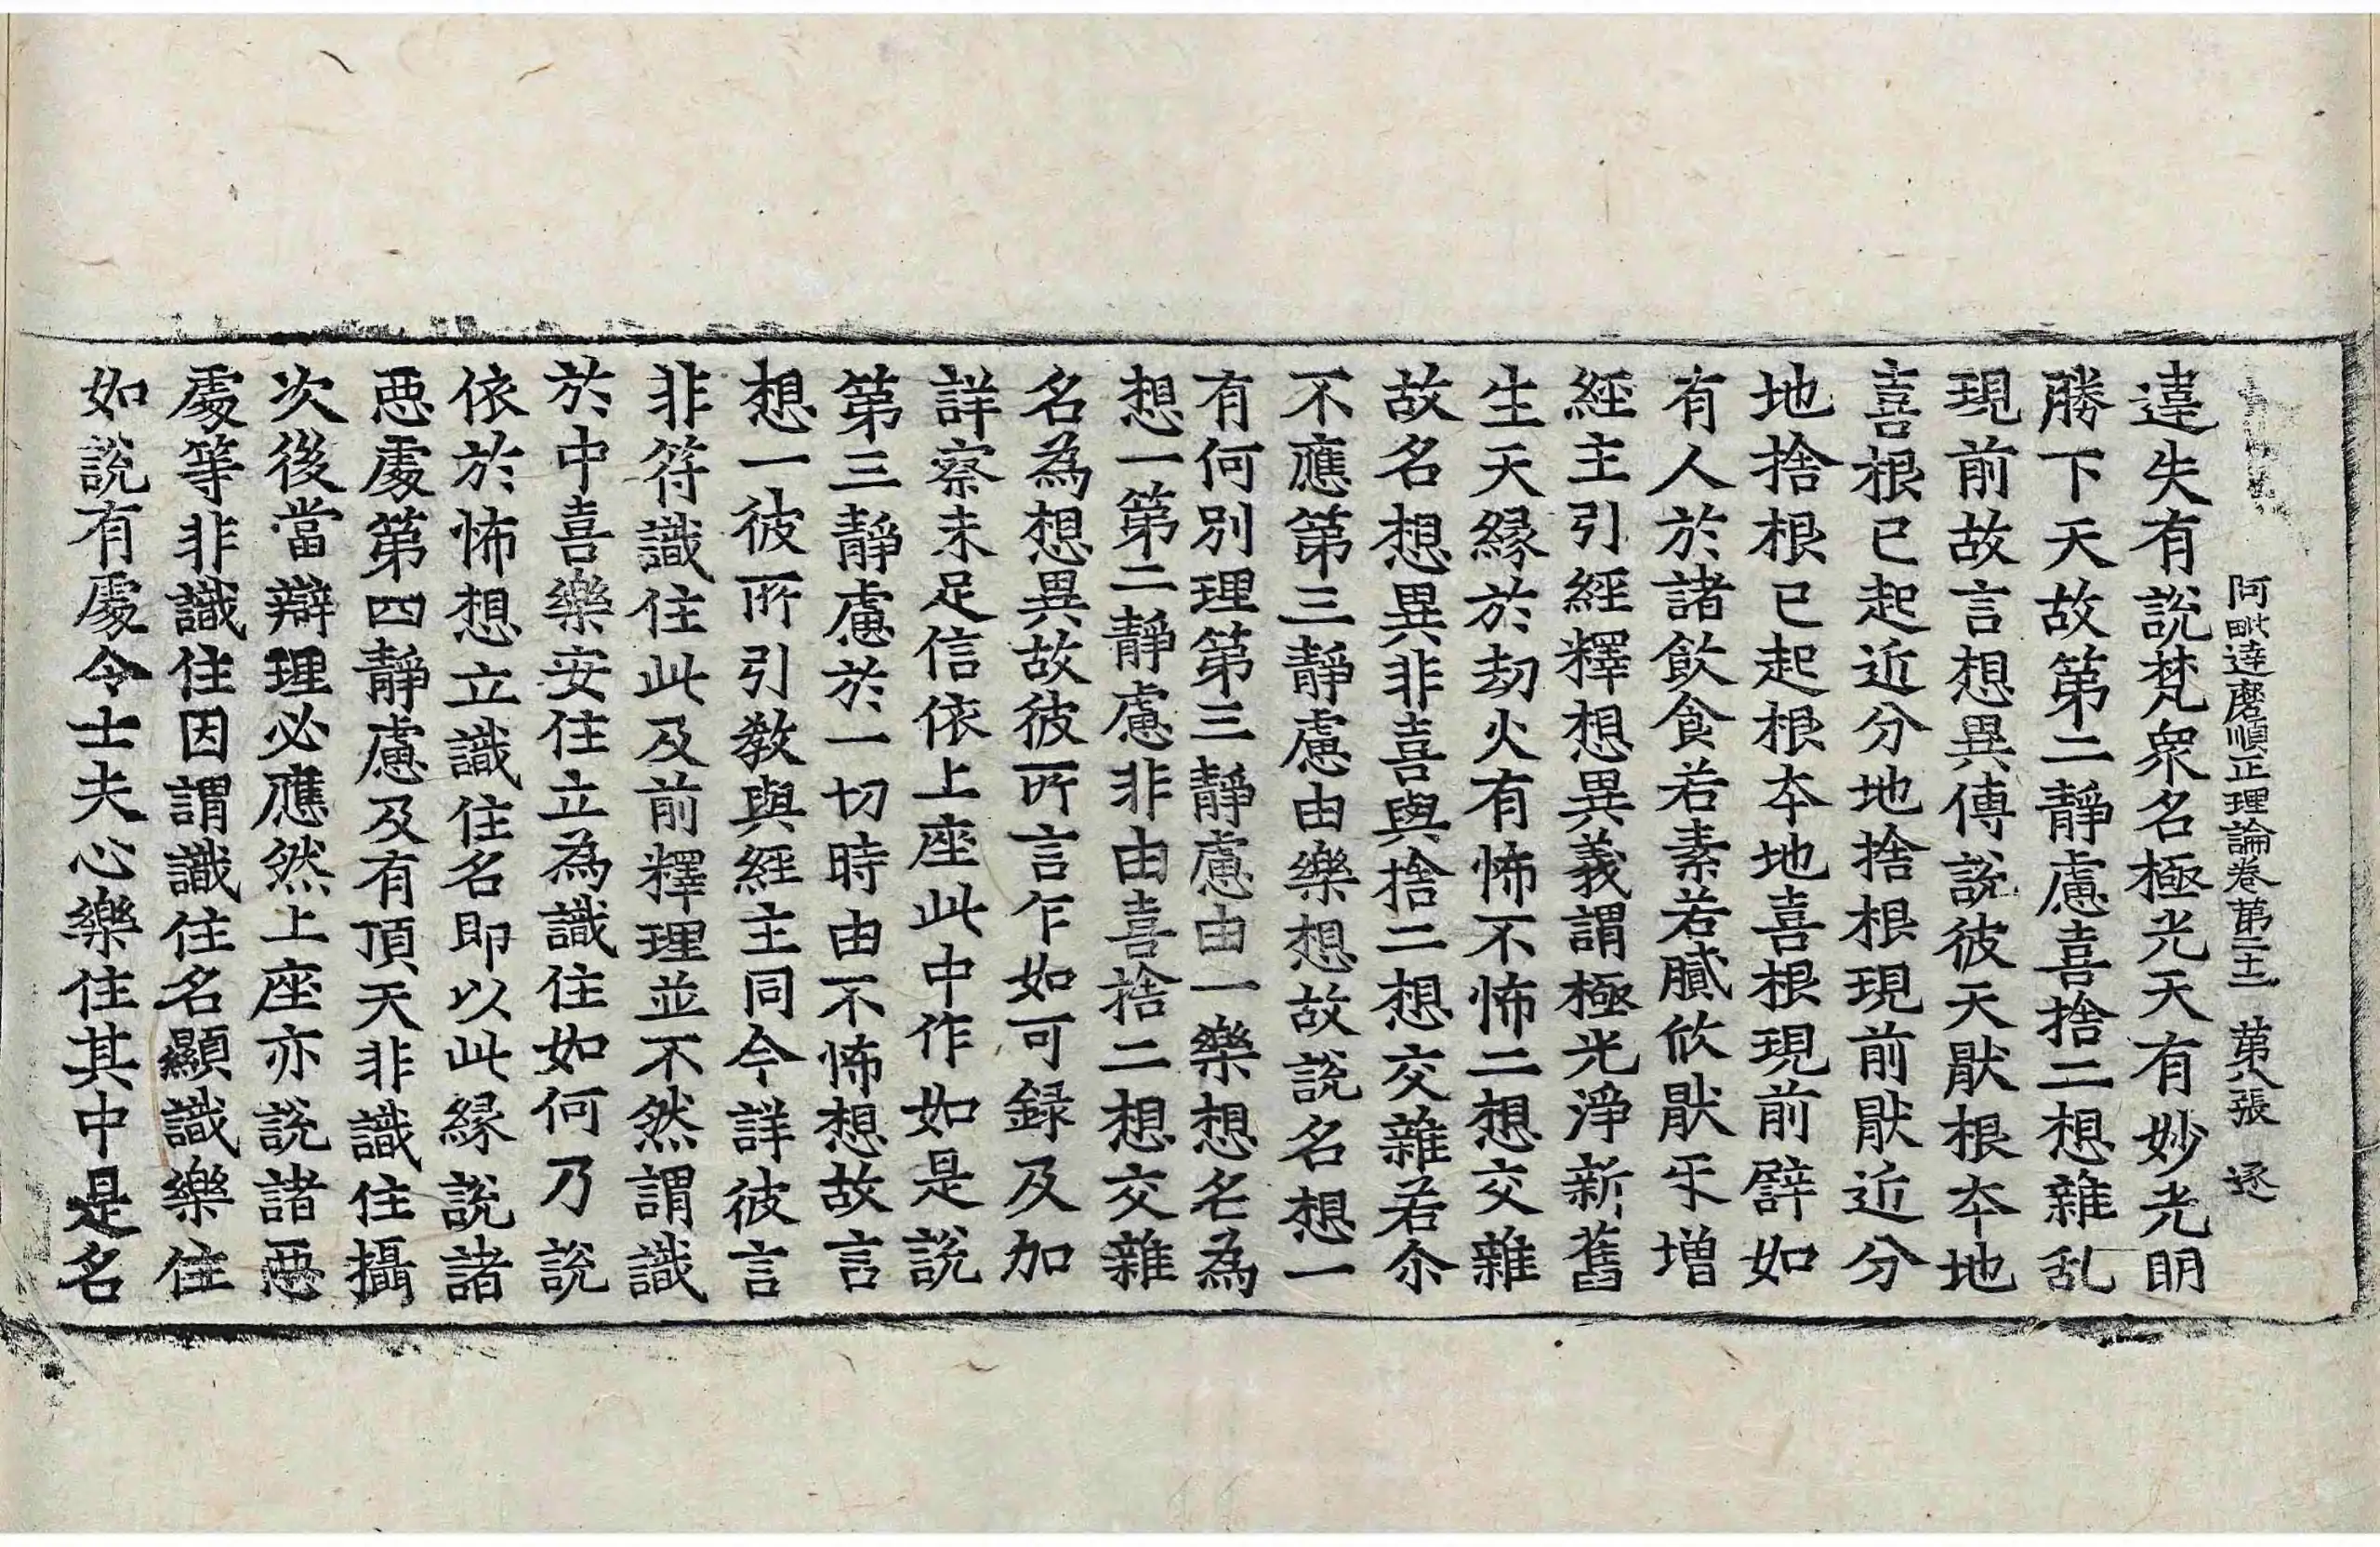 阿毗達磨順正理論卷第二十二 第八張 逐
違失有說梵衆名極光天有妙光明
勝下天故第二靜慮喜捨二想雜乱
現前故言想異傳說彼天猒根夲地
喜根已起近分地捨根現前猒近分
地捨根已起根夲地喜根現前譬如
有人於諸飮食若素若膩欣猒㸦增
經主引經釋想異義謂極光淨新舊
生天縁於劫火有怖不怖二想交雜
故名想異非喜與捨二想交雜若尒
不應第三靜慮由樂想故說名想一
有何別理第三靜慮由一樂想名為
想一第二靜慮非由喜捨二想交雜
名為想異故彼所言乍如可録及加
詳察未足信依上座此中作如是說
第三靜慮於一切時由不怖想故言
想一彼所引教與經主同今詳彼言
非符識住此及前釋理並不然謂識
於中喜樂安住立為識住如何乃說
依於怖想立識住名即以此縁說諸
惡處第四靜慮及有頂天非識住攝
次後當辯理必應然上座亦說諸惡
處等非識住因謂識住名顯識樂住
如說有處令士夫心樂住其中是名